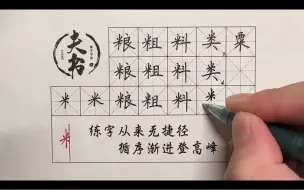 夫书
粮粗料类粟
粮粗料类
米米粮粗料米
米
练字从来无捷径
循序渐进登高峰